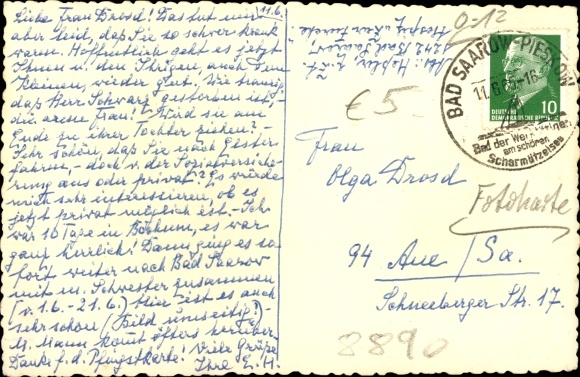 11.6.
Liebe Frau Drosd! Das tut mir
aber leid, daß Sie so schwer krank
waren. Hoffentlich geht es jetzt
Ihnen u. den Ihrigen, auch dem
Kleinen, wieder gut. Wie traurig,
daß Herr Schwarz gestorben ist,
die arme Frau! Wird sie am
Ende zu ihrer Tochter ziehen? -
Sehr schön, daß Sie nach
fahren, - doch v. der Sozialversiche-
rung aus oder privat? Es würde
mich sehr interessieren, ob es
jetzt privat möglich ist. - Ich
war 10 Tage in Bochum, es war
ganz herrlich! Dann ging es so-
fort weiter nach Bad Saarow
mit m. Schwester zusammen
(v. 1.6. - 21.6.) Hier ist es auch
sehr schön (Bild umseitig).
M. Mann kommt öfters herüber.
Danke f. d. Pfingstkarte! Viele Grüße
Ihre E. H.
Abs.: z. Zt.
1242 Bad Saarow
0-12
BAD SAAROW-PIESKOW
11.6.
-16
Bad der Werktätigen
am schönen
Scharmützelsee
10
DEUTSCHE
DEMOKRATISCHE REPUBLIK
€5-
Frau
Olga Drosd
Fotokarte
94 Aue / Sa.
Schneeberger Str. 17.
8890